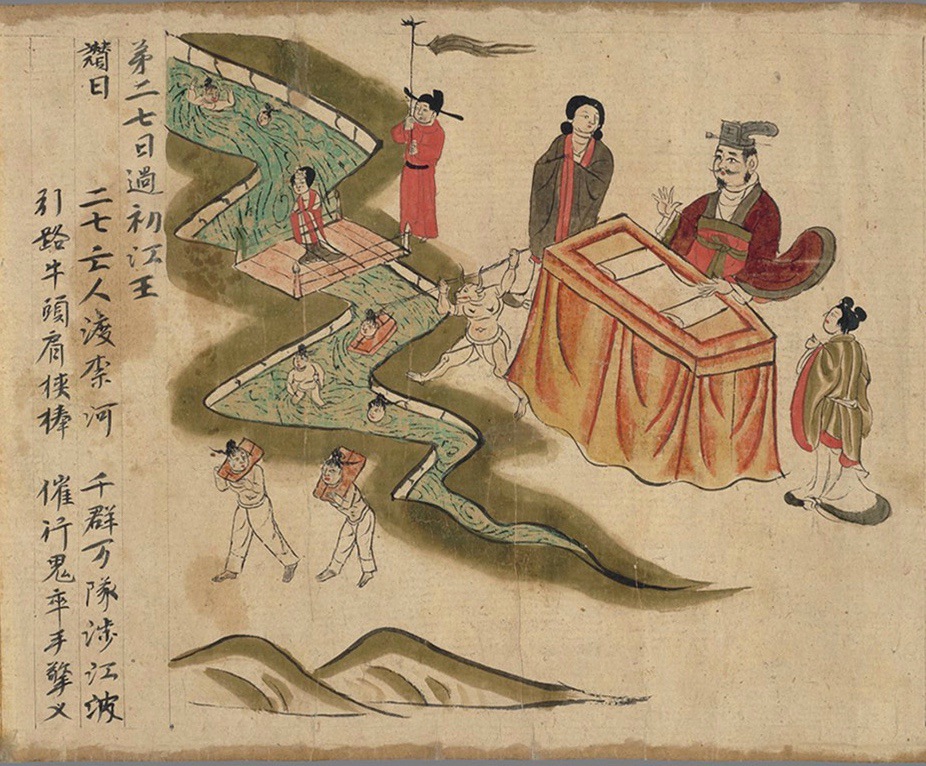 弟二七日過初江王
讚曰 二七亡人渡柰河 千群万隊涉江波
引路牛頭肩俠棒 催行鬼卒手擎叉